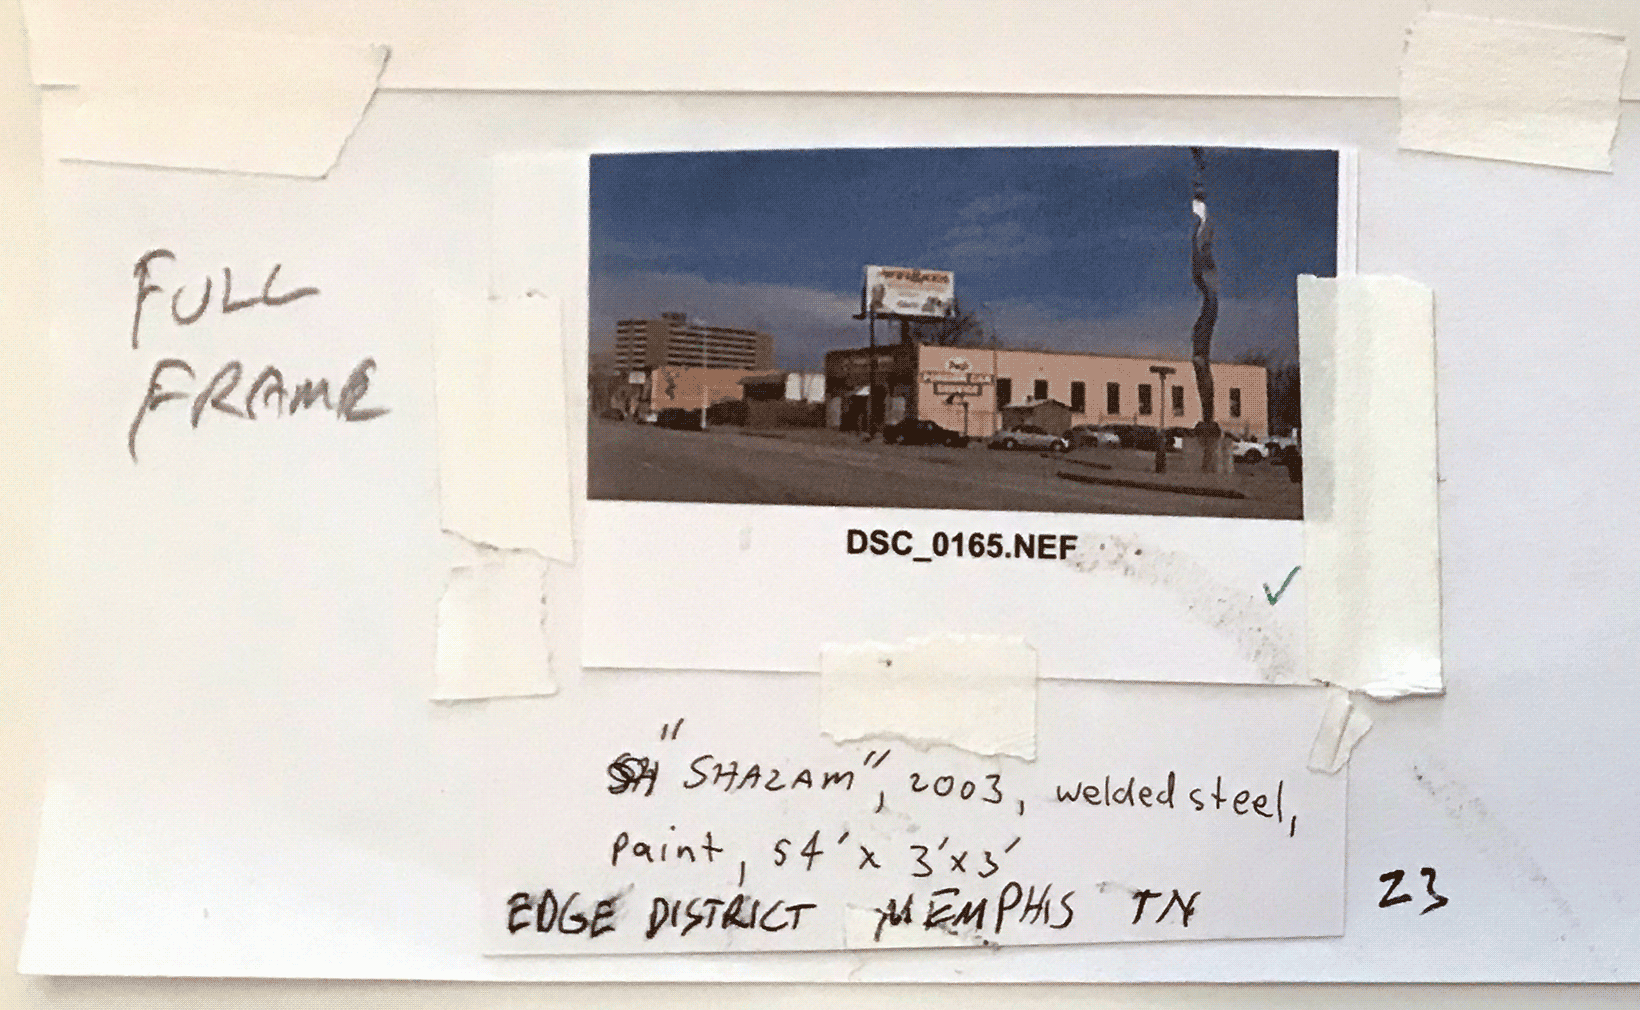 FULL
FRAME
DSC_0165.NEF
✓
SH "SHAZAM", 2003, welded steel,
paint, 54' x 3' x 3'
EDGE DISTRICT MEMPHIS TN
23